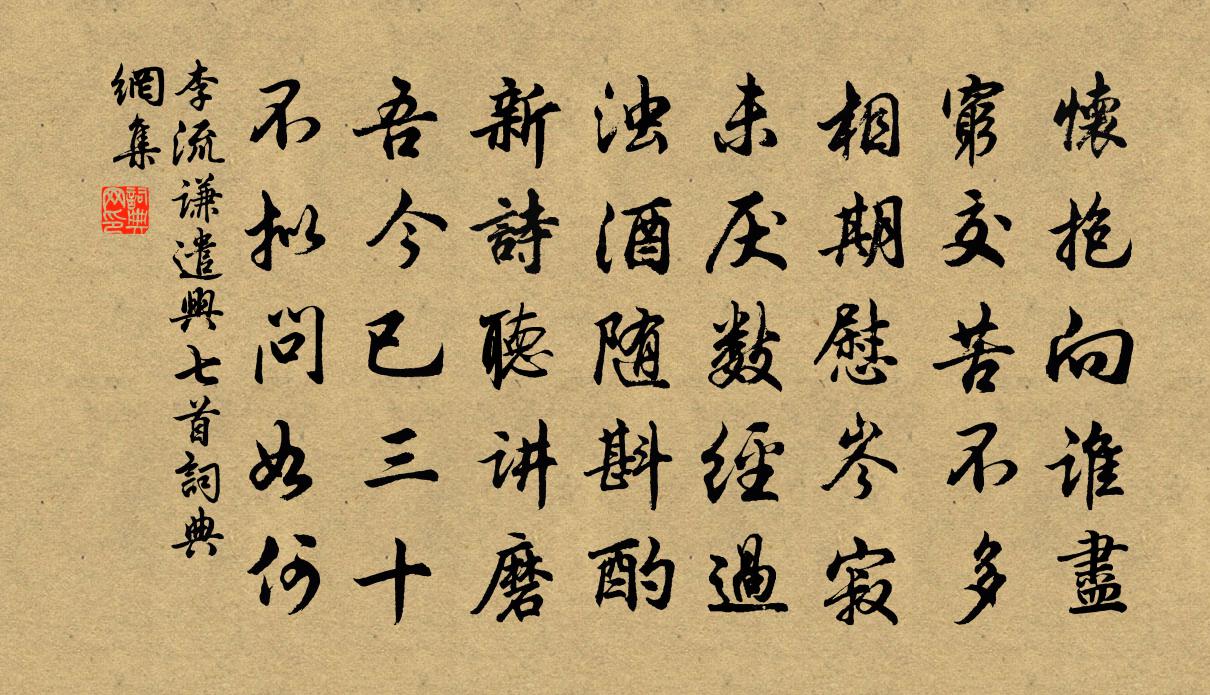 懷抱向誰盡
窮交苦不多
相期慰岑寂
未厌數經過
浊酒随斟酌
新詩聽讲磨
吾今已三十
不拟问如何
李流谦遣興七首詞典
網集
詞典
网印